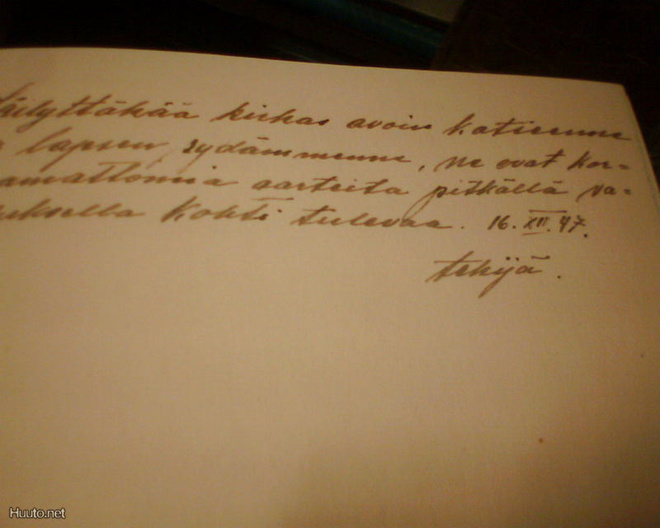 Säilyttäkää kirkas avoin katseenne
a lapsen sydämmenne, ne ovat kor=
aamattomia aarteita pitkällä va=
elluksella kohti tulevaa. 16.XII.47.
tekijä.
Huuto.net